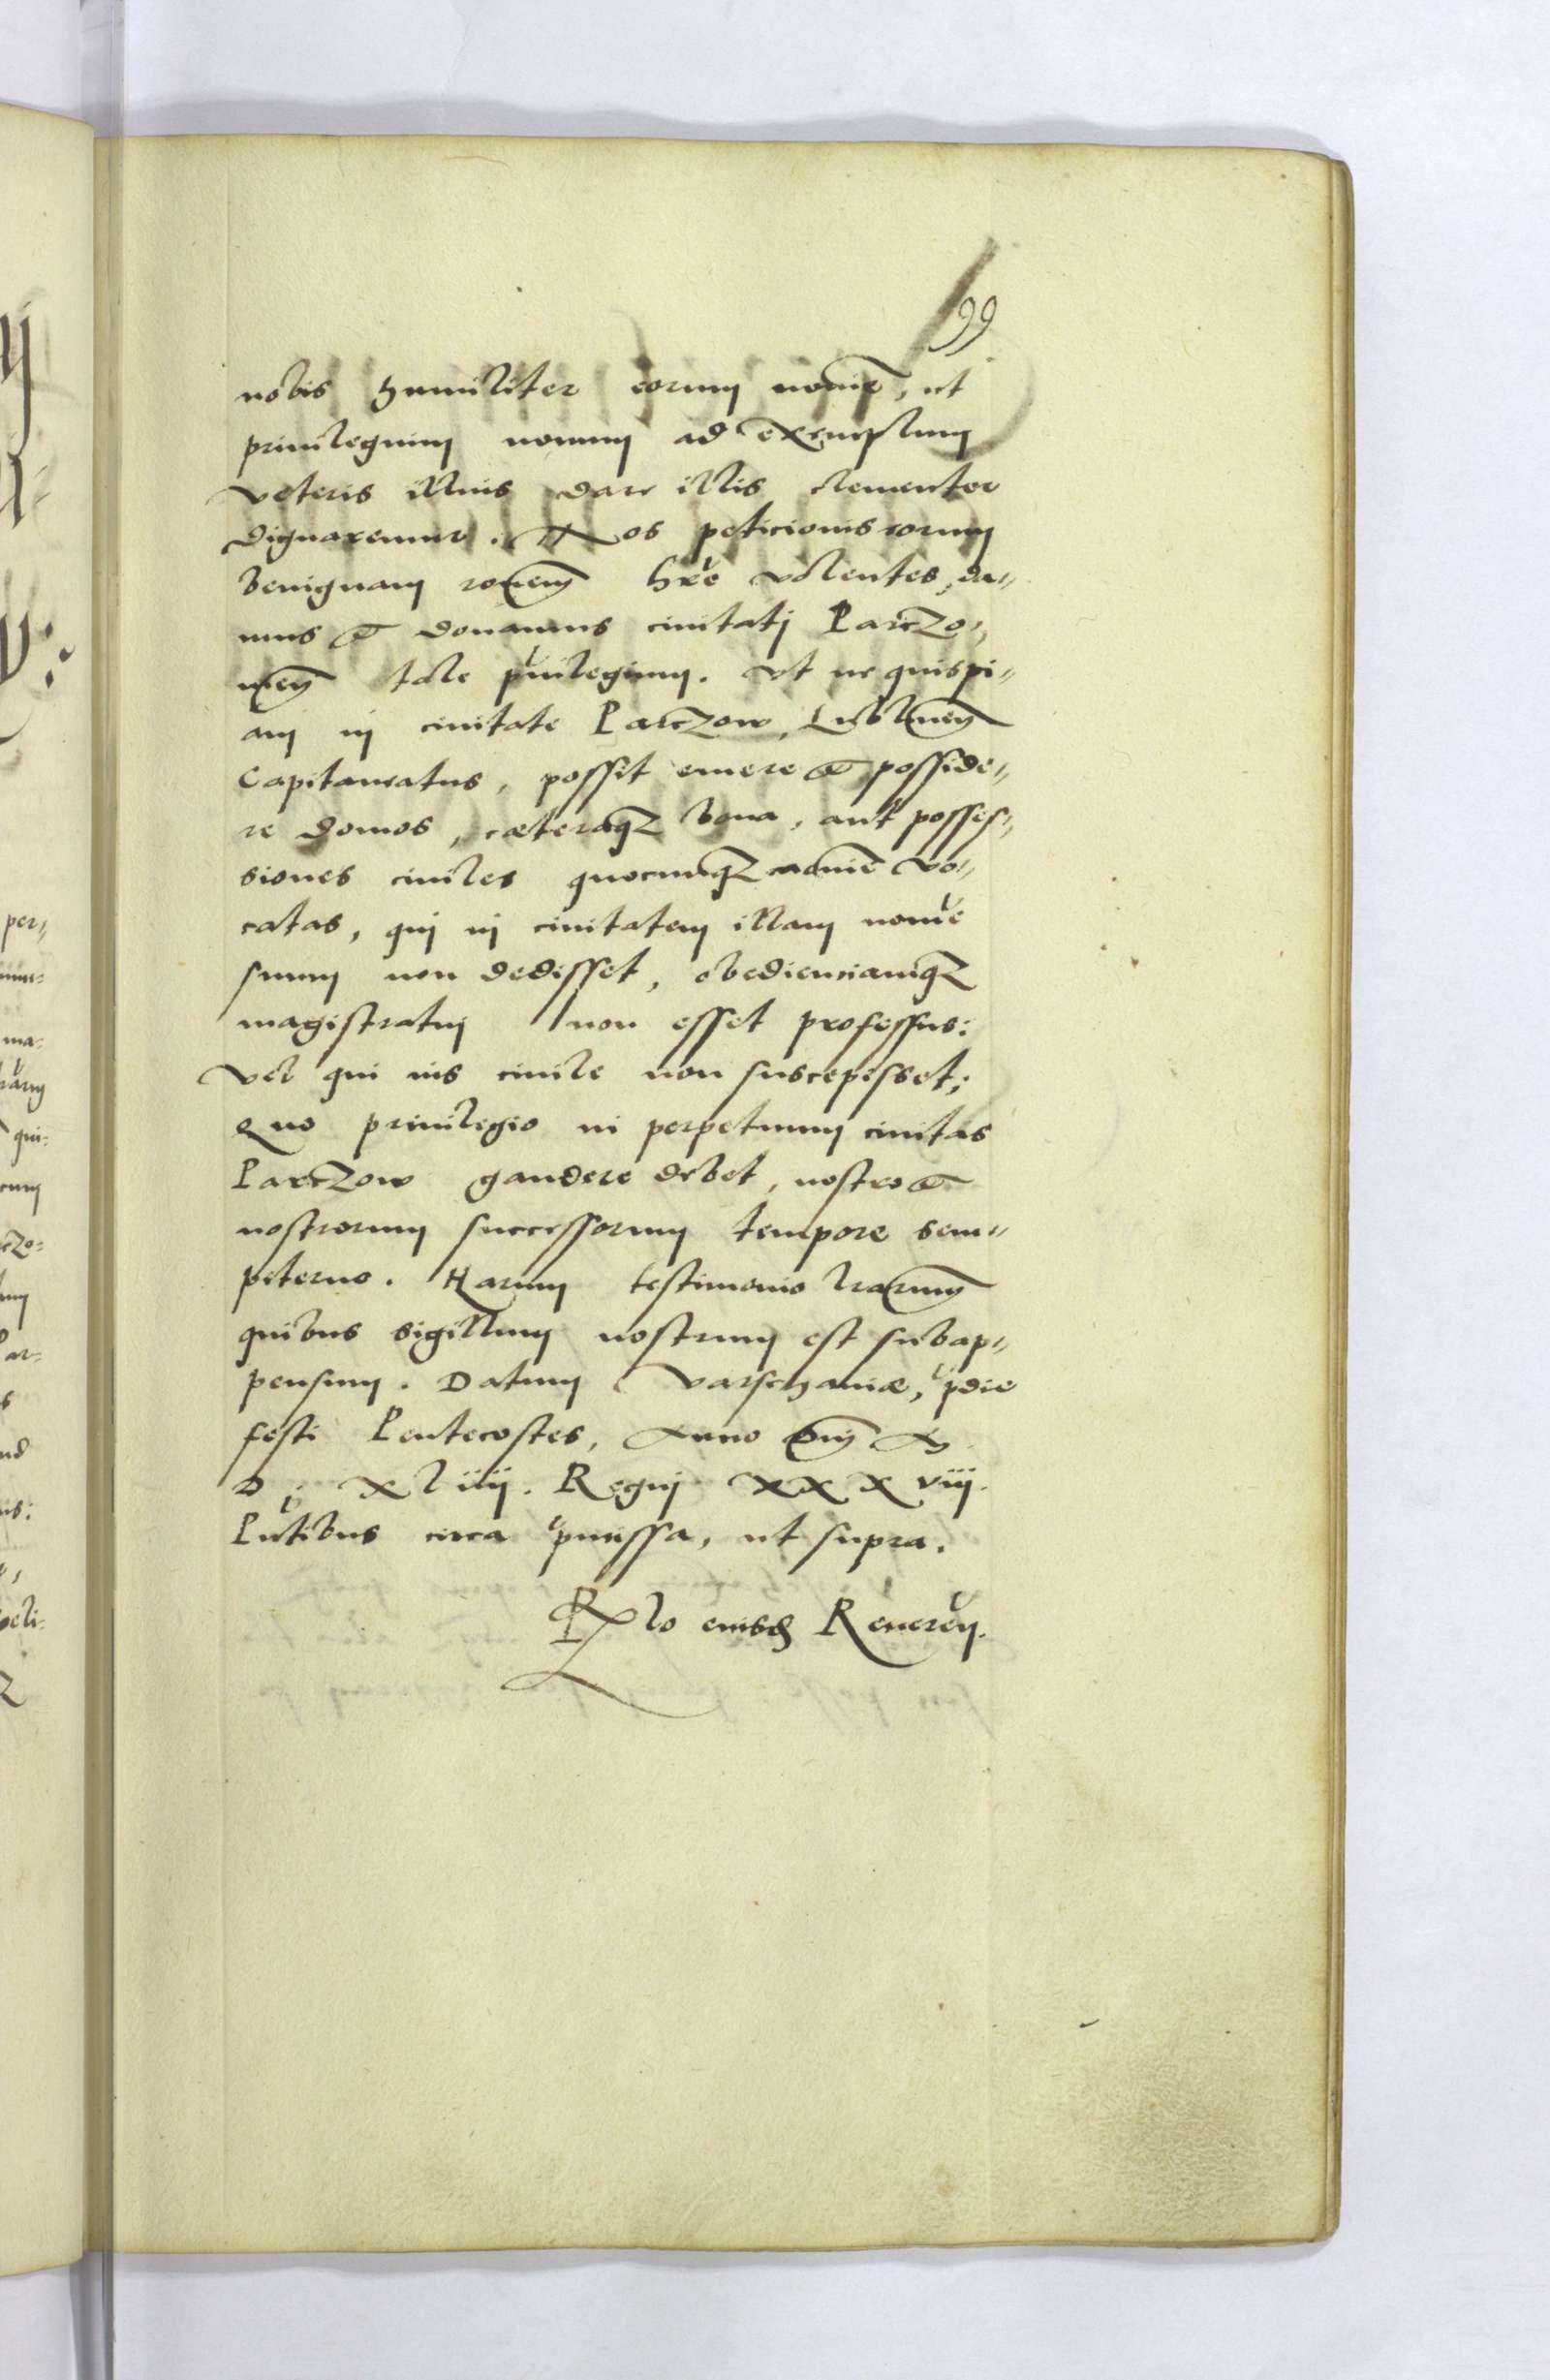 99
nobis humiliter eorum noı̄e, ut
priuilegium nouum ad exemplum
veteris illius dare illis clementer
dignaremur. Nos peticionis eorum
benignam roēm hr̄e volentes, da„
mus et donamus ciuitatj Parczo„
uieñ tale p̄uilegium. Vt ne quispi„
am in ciuitate Parczow, Lublineñ
Capitaneatus, possit emere et posside„
re domos, cæteraqz bona, aut posses„
siones ciuiles quocunqz noı̄e vo„
catas, quj in ciuitatem illam nome
suum non dedisset, obedienciamqz
magistratuj non esset professus:
Vel qui ius ciuile non suscepisset;
Quo priuilegio in perpetuum ciuitas
Parczow gaudere debet, nostro et
nostrorum successorum tempore sem„
piterno. Harum testimonio lrarum
quibus sigillum nostrum est subap„
pensum. Datum Varschauiæ, p̄die
festi Pentecostes, Anno Dnj M
D. XLiiij. Regnj XXX viij.
Pn̄tibus circa p̄missa, ut supra.
Rlo eiusd Reueren.